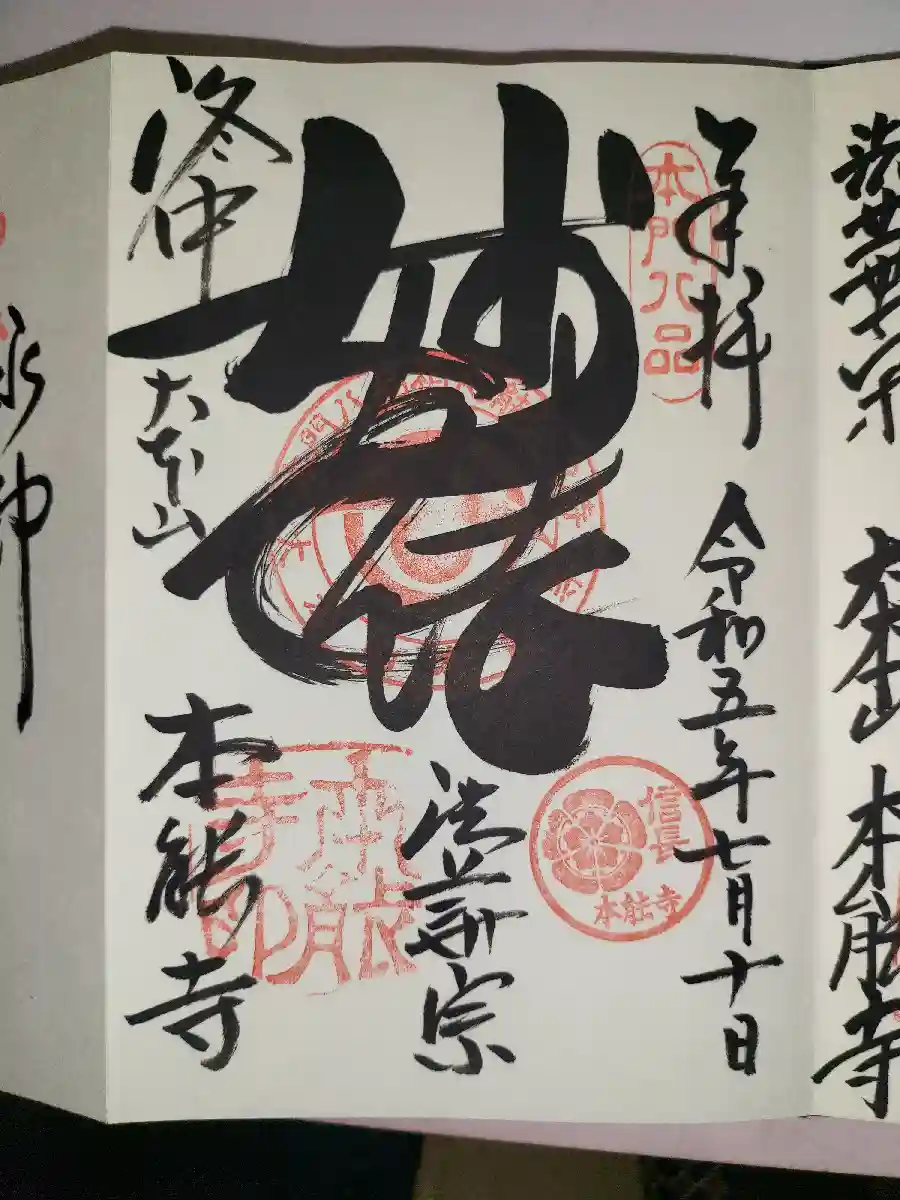 大本山
本能寺
奉拝
令和五年七月十日
本門八品
妙法
法華宗
信長
本能寺
洛中
大本山
本能寺
本能寺印